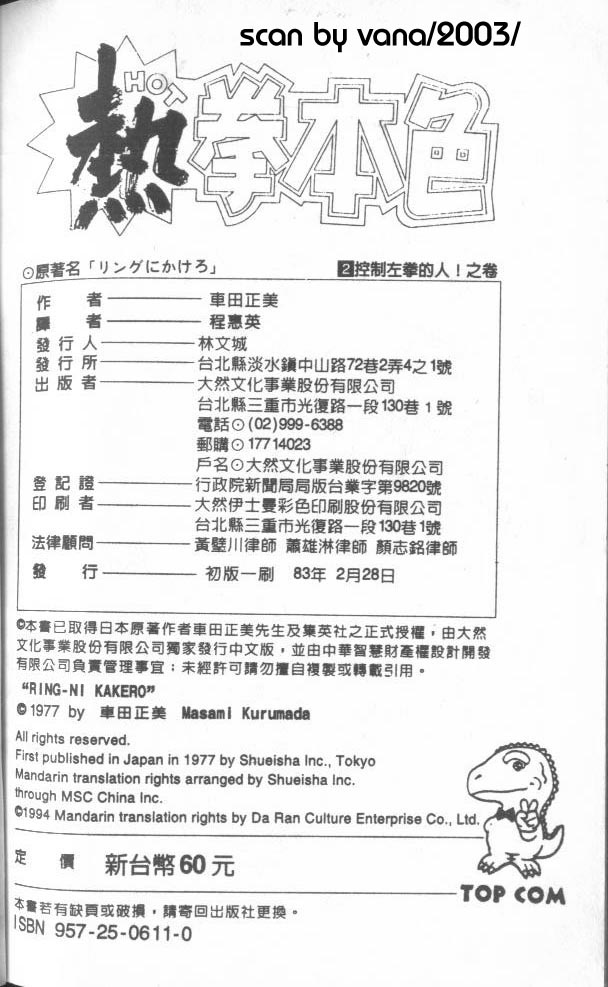 scan by vana/2003/
HOT
熱拳本色
⊙原著名「リングにかけろ」
2控制左拳的人！之卷
作 者 車田正美
譯 者 程惠英
發行人 林文城
發行所 台北縣淡水鎮中山路72巷2弄4之1號
出版者 大然文化事業股份有限公司
台北縣三重市光復路一段130巷1號
電話⊙(02)999-6388
郵購⊙17714023
戶名⊙大然文化事業股份有限公司
登記證 行政院新聞局局版台業字第9820號
印刷者 大然伊士曼彩色印刷股份有限公司
台北縣三重市光復路一段130巷1號
法律顧問 黃璧川律師 蕭雄淋律師 顏志銘律師
發 行 初版一刷 83年 2月28日
©本書已取得日本原著作者車田正美先生及集英社之正式授權，由大然
文化事業股份有限公司獨家發行中文版，並由中華智慧財產權設計開發
有限公司負責管理事宜；未經許可請勿擅自複製或轉載引用。
“RING-NI KAKERO”
©1977 by 車田正美 Masami Kurumada
All rights reserved.
First published in Japan in 1977 by Shueisha Inc., Tokyo
Mandarin translation rights arranged by Shueisha Inc.
through MSC China Inc.
©1994 Mandarin translation rights by Da Ran Culture Enterprise Co., Ltd.
定 價 新台幣60元
TOP COM
本書若有缺頁或破損，請寄回出版社更換。
ISBN 957-25-0611-0